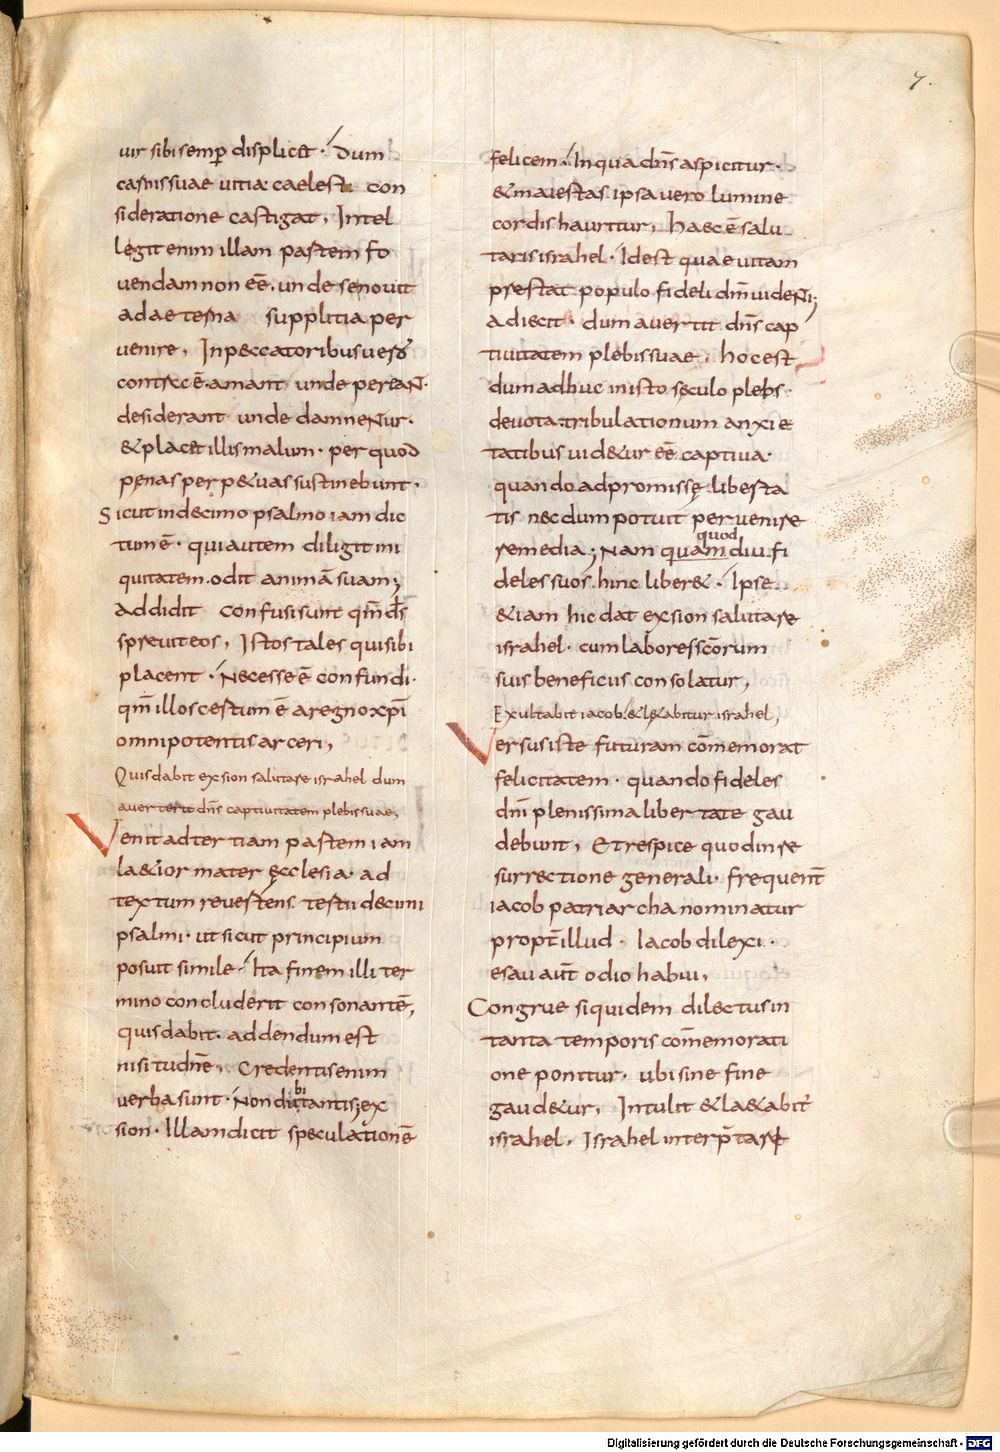 7.
uir sibi semp̄ displicet · Dum
carnis suae uitia caelesti con
sideratione castigat, Intel
legit enim illam partem fo
uendam non eē. unde se nouit
ad aeterna supplitia per
uenire, In peccatoribus uero
contrec̄ē. amant unde pereant·
desiderant unde damnentur·
& placet illis malum · per quod
penas perp&uas sustinebunt ·
Sicut in decimo psalmo iam dic
tum ē · qui autem diligit ini
quitatem. odit animā suam;
addidit confusi sunt qm̄ ds̄
spreuit eos, Istos tales qui sibi
placent · Necesse ē confundi·
qm̄ illos certum ē a regno xp̄i
omnipotentis arceri,
Quis dabit ex sion salutare israhel dum
auerterit dn̄s captiuitatem plebis suae,
Venit ad tertiam partem iam
la&ior mater ęcclesia · ad
textum reuertens testu decimi
psalmi · ut sicut principium
posuit simile · Ita finem illi ter
mino concluderit consonantē,
quis dabit · addendum est
nisi tu dn̄e, Credentis enim
uerba sunt · Non dubitantis; ex
sion · Illam dicit speculationē
felicem · In qua dn̄s aspicitur ·
& maiestas ipsa uero lumine
cordis hauritur, Haec ē salu
taris israhel · Id est quae uitam
prestat populo fideli dm̄ uidenti;
adiecit · dum auertit dn̄s cap
tiuitatem plebis suae, hoc est
dum adhuc in isto seculo plebs·
deuota. tribulationum anxie
tatibus uid&ur eē captiua·
quando ad promissę liberta
tis necdum potuit peruenire
remedia; Nam quamdiu fi
quod
deles suos hinc liber& · Ipse
&iam hic dat ex sion salutare
israhel · cum labores sc̄orum
suis beneficiis consolatur,
Exultabit iacob · & l&abitur israhel,
Versus iste futuram cōmemorat
felicitatem · quando fideles
dn̄i plenissima libertate gau
debunt, Et respice quod in re
surrectione generali · frequent̄
iacob patriarcha nominatur
propt̄ illud · Iacob dilexi ·
esau aut̄ odio habui,
Congrue siquidem dilectus in
tanta temporis cōmemorati
one ponitur · ubi sine fine
gaud&ur, Intulit & la&abit̄
israhel, Israhel interp̄tare
Digitalisierung gefördert durch die Deutsche Forschungsgemeinschaft - DFG